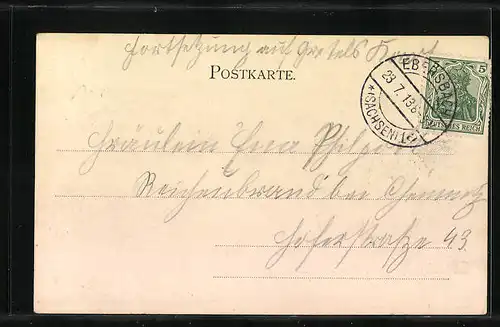 Fortsetzung auf Gretels Karte
POSTKARTE.
EBERSBACH
23 7 13 8
*(SACHSEN)
5
DEUTSCHES REICH
Fräulein Erna
Reichenbrand bei Chemnitz
Hoferstraße 43